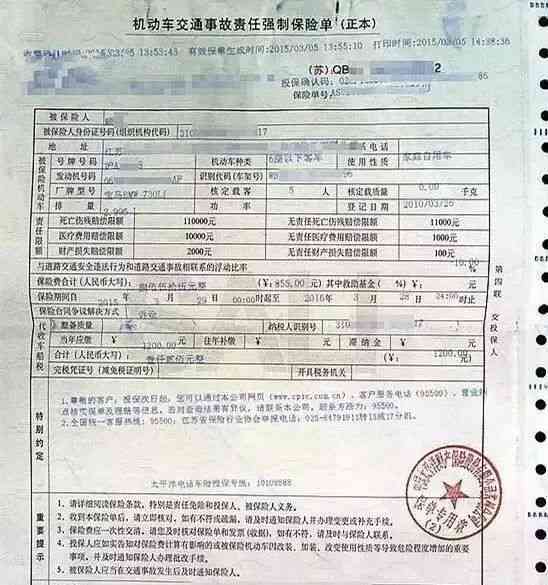 机动车交通事故责任强制保险单(正本)
13:53:43 有效保单生成时间:2015/03/05 13:55:10 打印时间:2015/03/05 14:38:36
(苏):QB 2
投保确认码: 86
保险单号:
被保险人
被保险人身份证号码(组织机构代码) 310 17
地址 联系电话
被保险机动车
号牌号码 机动车种类 6座以下客车 使用性质 家庭自用车
发动机号码 识别代码(车架号)
厂牌型号 宝马BMW 730Li 核定载客 5 人 核定载质量 0.00 千克
排量 2.996L 功率 登记日期 2010/03/26
责任限额
死亡伤残赔偿限额 110000元 无责任死亡伤残赔偿限额 11000元
医疗费用赔偿限额 10000元 无责任医疗费用赔偿限额 1000元
财产损失赔偿限额 2000元 无责任财产损失赔偿限额 100元
与道路交通安全违法行为和道路交通事故相联系的浮动比率
保险费合计(人民币大写): 捌佰伍拾伍元整 (¥: 855.00 元) 其中救助基金( %)¥: 元
保险期间自 2015 3 29 00:00时起至 2016 3 28 24:00时止
保险合同争议解决方式 诉讼
代收车船税
整备质量 纳税人识别号 310 17
当年应缴 ¥: 1200.00 元 往年补缴 ¥: 元 滞纳金 ¥: 元
合计(人民币大写): 壹仟贰佰元整 (¥: 1200.00 元)
完税凭证号(减免税证明号) 开具税务机关
特别约定
1.尊敬的客户:投保次日起,您可以通过本公司网页(www.cpic.com.cn)、客户服务电话(95500)、营业网
点核实保单及理赔等信息。若对查询结果有异议,请联系本公司。联系方法为:95500.
2.全国统一客服热线:95500;江苏省保险行业协会举报电话:
太平洋电话车险投保专线: 10108888
重要提示
1. 请详细阅读保险条款,特别是责任免除和投保人、被保险人义务。
2. 收到本保险单后,请立即核对,如有不符或疏漏,请及时通知保险人并办理变更或补充手续。
3. 保险费应一次性交清,请您及时核对保险单和发票(收据),如有不符,请及时与保险人联系。
4. 投保人应如实告知对保险费计算有影响的或被保险机动车因改装、加装、改变使用性质等导致危险程度增加的重要
事项,并及时通知保险人办理批改手续。
5. 被保险人应当在交通事故发生后及时通知保险人。
第四联 交投保人
(2)